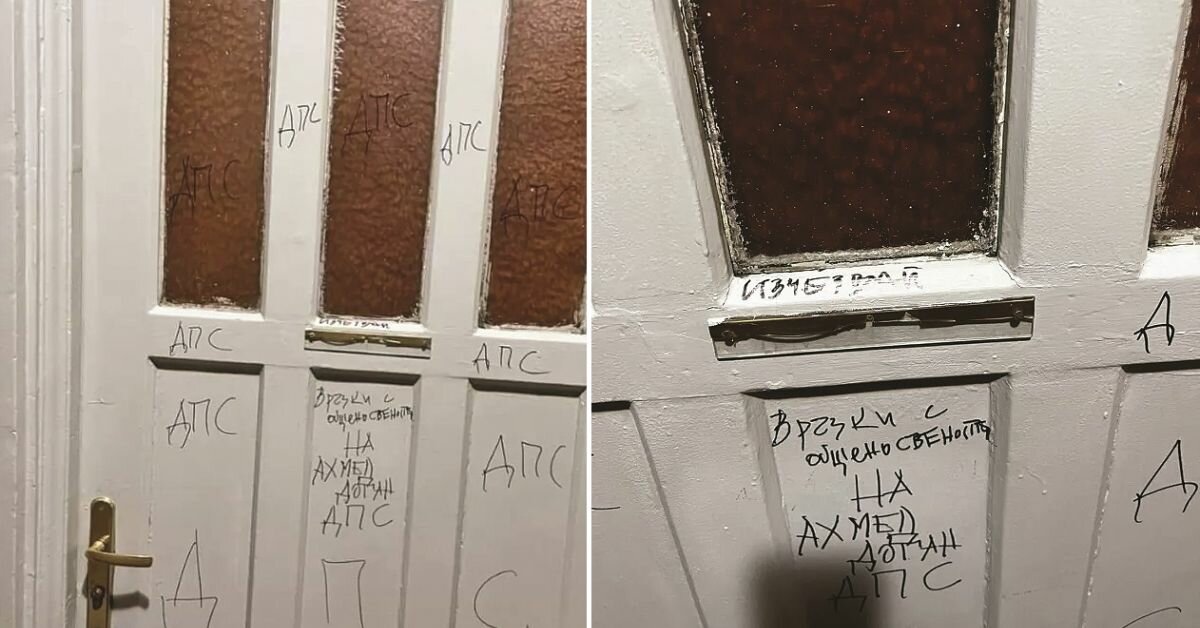 ДПС
ДПС
ДПС
ДПС
ДПС
ИЗЧЕЗВАЙ
ДПС
ДПС
ДПС
Връзки с
общеноСВЕНоСТТА
НА
АХМЕД
ДОГАН
ДПС
ДПС
Д П С
ИЗЧЕЗВАЙ
Д
Връзки с
общеноСВЕНоСТТА
НА
АХМЕД
ДОГАН
ДПС
Д